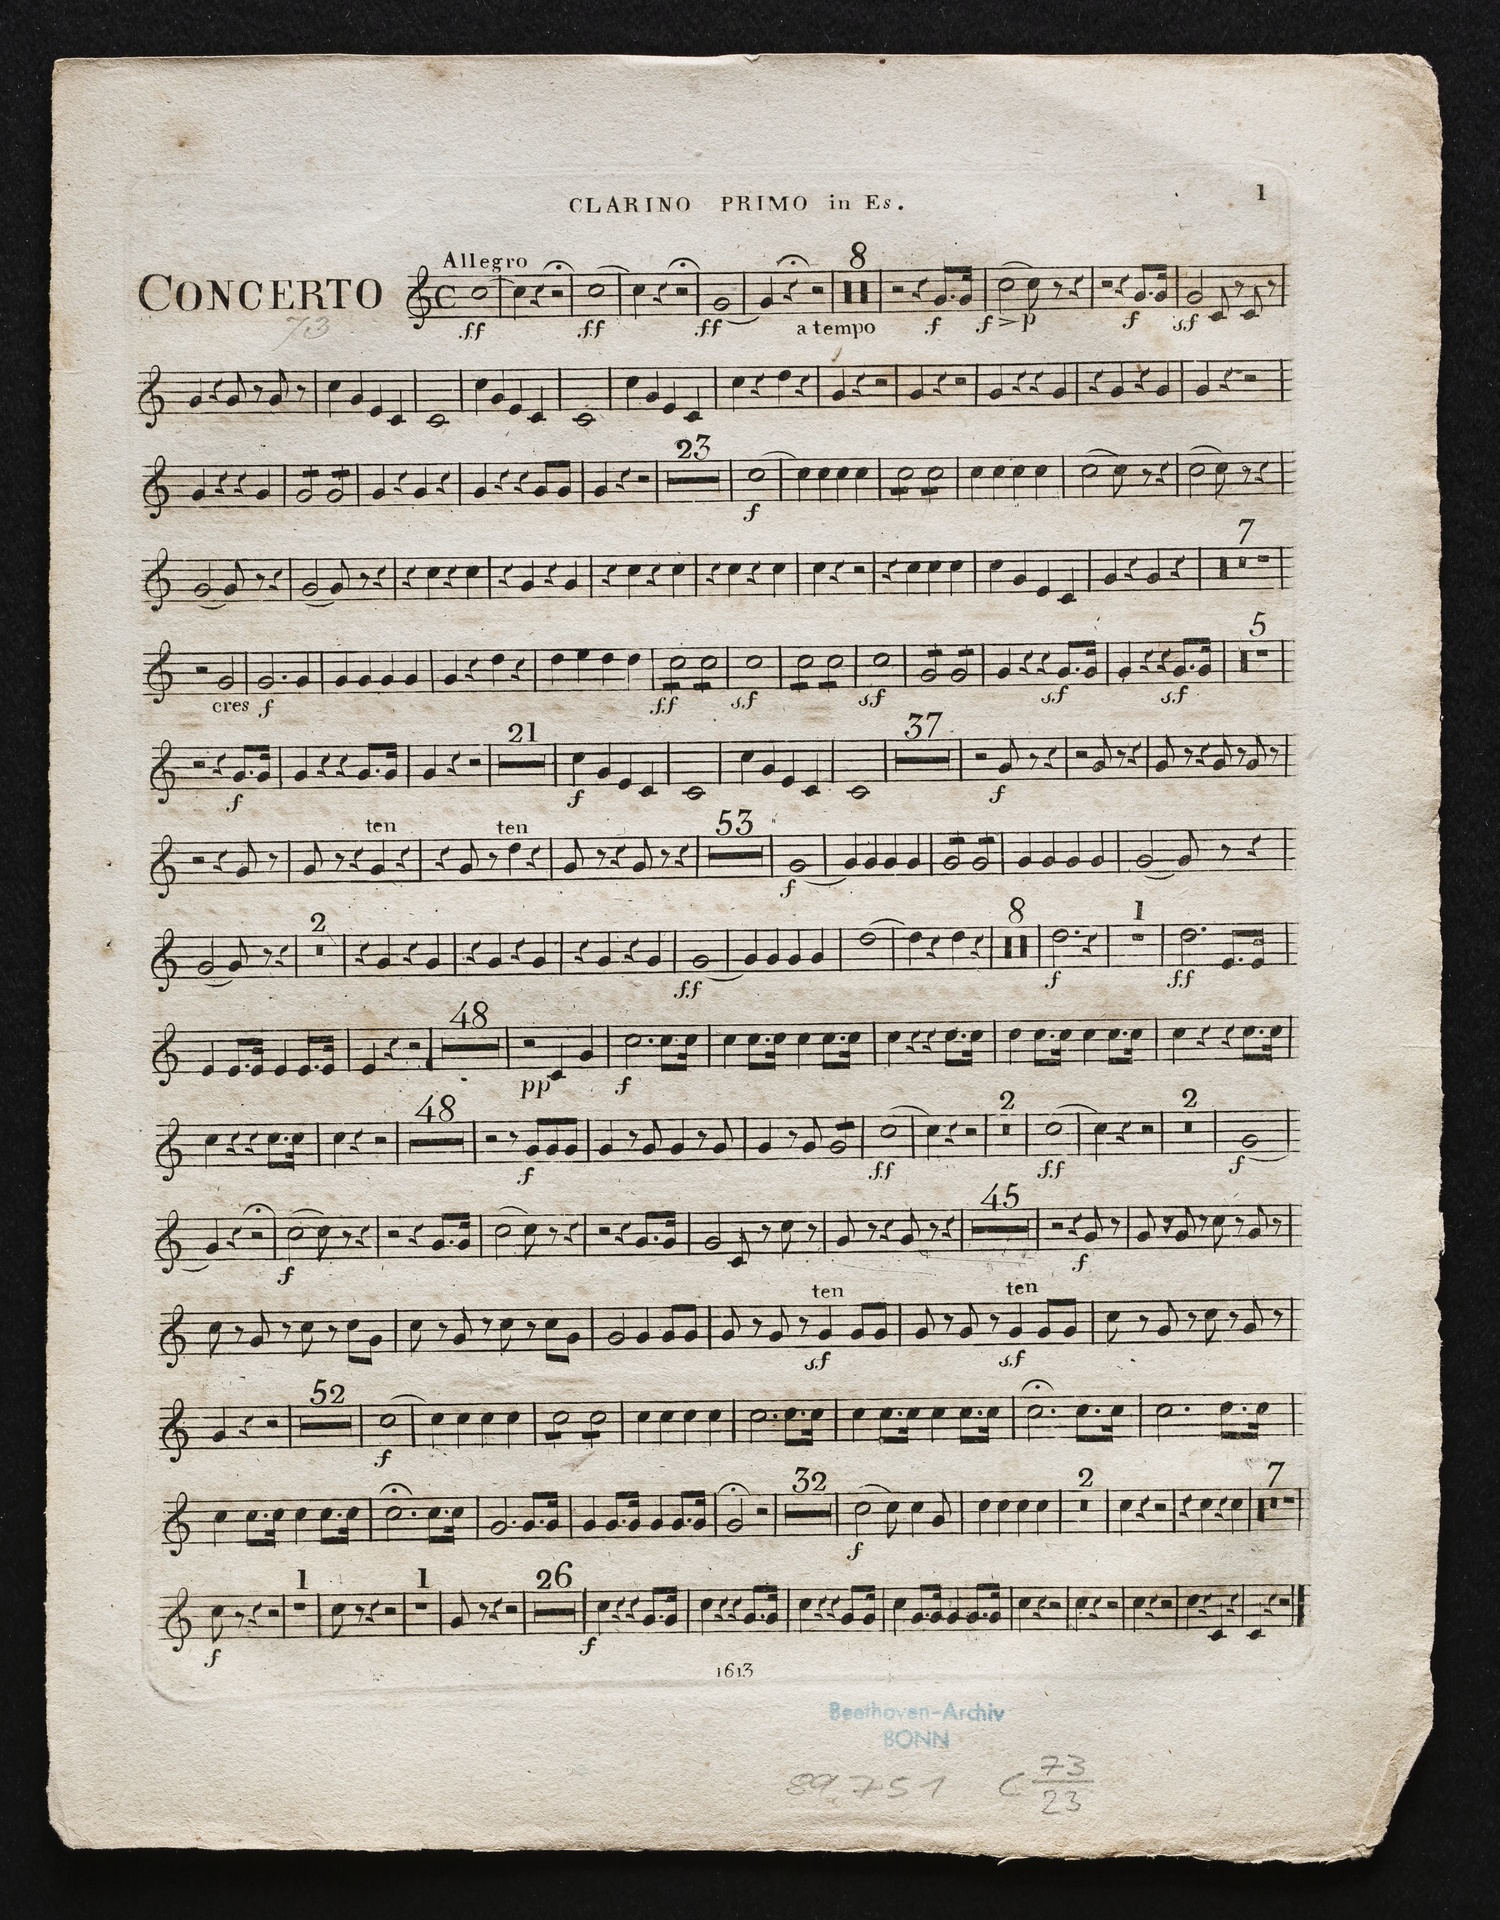 CLARINO PRIMO in Es.
1
CONCERTO
73
Allegro
8
ff ff ff a tempo f f > p f sf
23
f
7
cres f ff sf sf sf sf
5
21
37
f f f
ten ten
53
f
2
8
1
ff f ff
48
pp f
48
2
2
f ff ff f
45
f f
ten ten
sf sf
52
f
32
2
7
f
1
1
26
f f
1613
Beethoven-Archiv
BONN
89.751 C 73
23